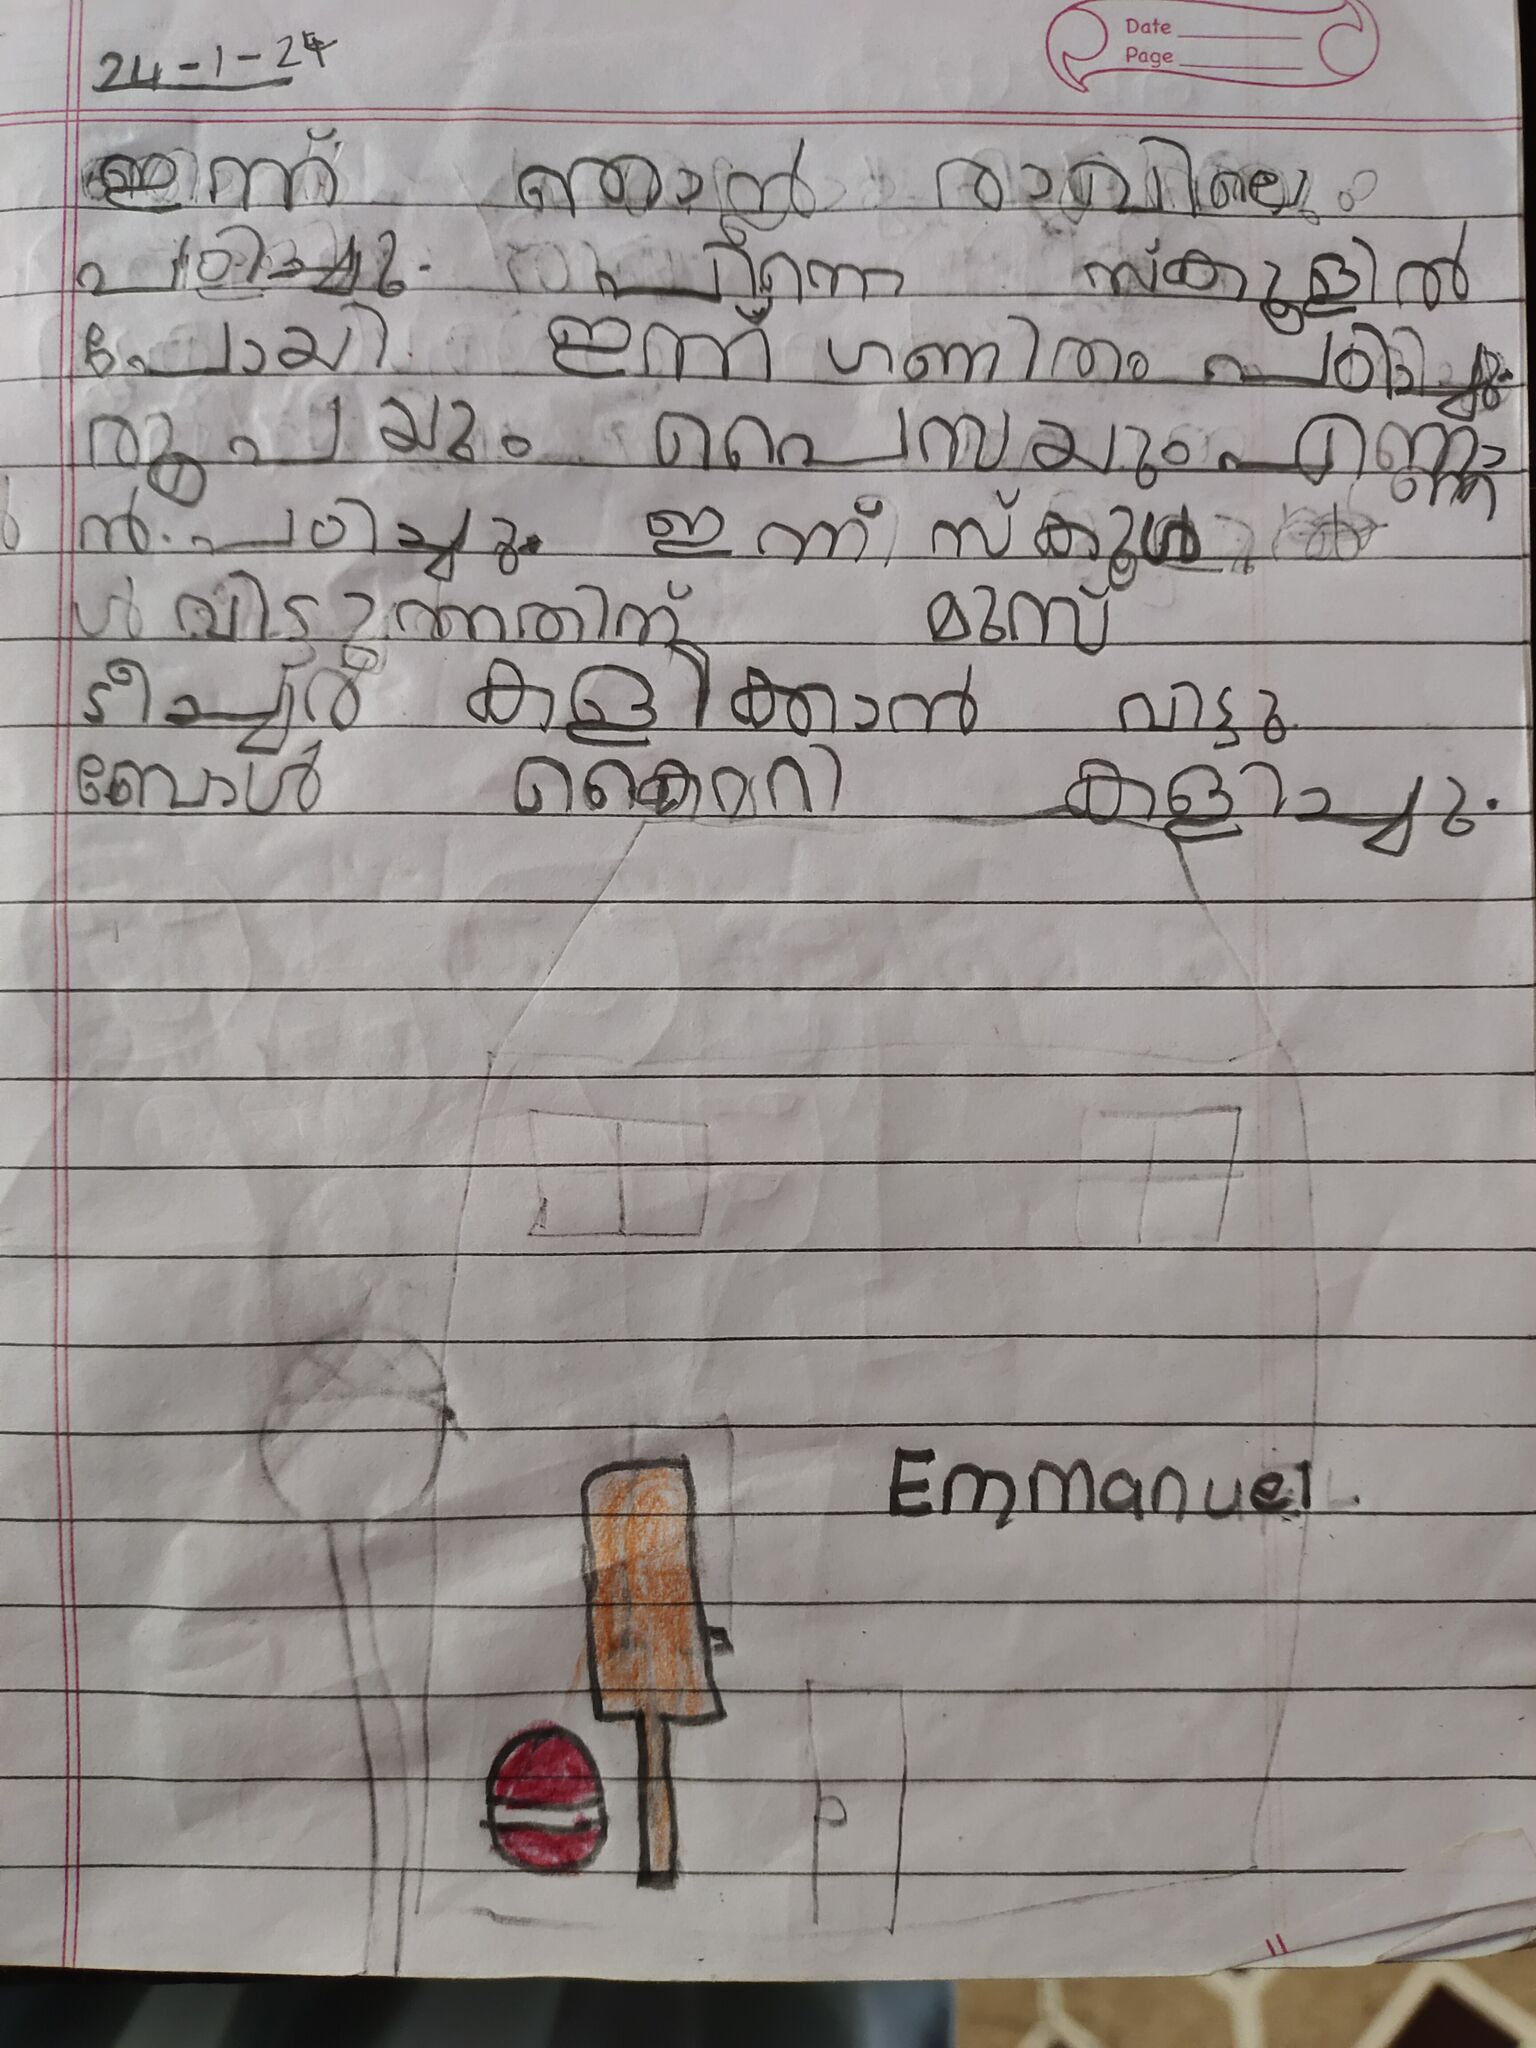 24-1-24
Date
Page
ഇന്ന് ഞാൻ രാവിലെ
പഠിച്ചു. പിന്നെ സ്കൂളിൽ
പോയി ഇന്ന് ഗണിതം പഠിച്ചു.
രൂപയും പൈസയും
ൻ പഠിച്ചു. ഇന്ന് സ്കൂൾ
വിടുന്നതിന് മുമ്പ്
ടീച്ചർ കളിക്കാൻ വിട്ടു
ബോൾ കളിച്ചു.
Emmanuel